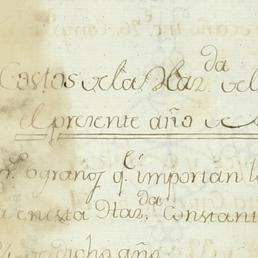 Costos de la Haz.da de l
el presente año de
ograno, q.e importan l
en esta Haz.da Constan
dicho año